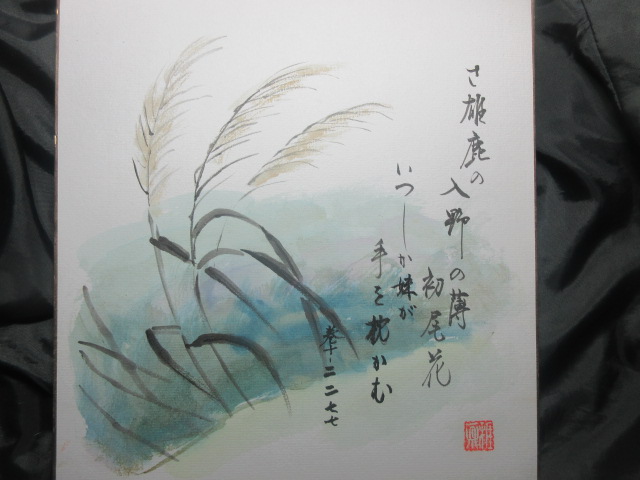 さ雄鹿の
入野の薄
初尾花
いつしか妹が
手を枕かむ
巻十-二二七七